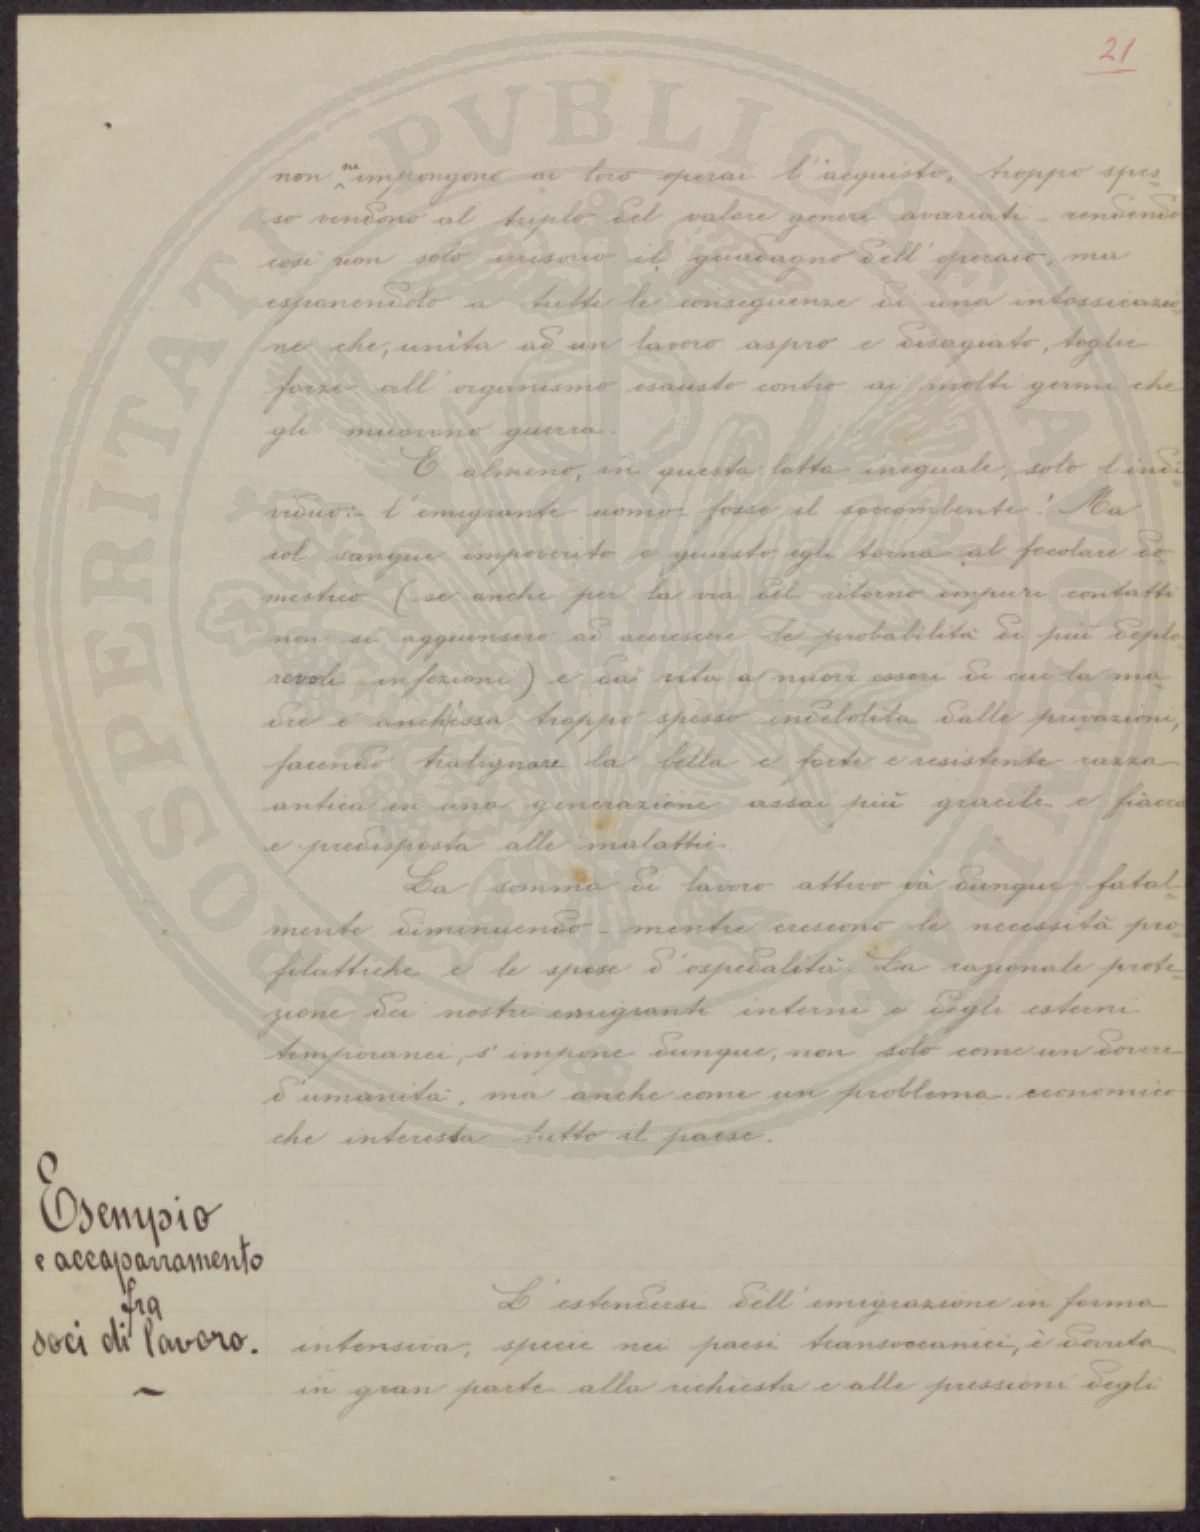 21
non ne impongono ai loro operai l'acquisto, troppo spes=
so vendono al triplo del valore generi avariati - rendendo
così non solo irrisorio il guadagno dell'operaio, ma
esponendolo a tutte le conseguenze di una intossicazio=
ne che, unita ad un lavoro aspro e disagiato, toglie
forze all'organismo esausto contro ai molti germi che
gli muovono guerra.
E almeno, in questa lotta ineguale, solo l'indi=
viduo - l'emigrante uomo - fosse il soccombente! Ma
col sangue impoverito e guasto egli torna al focolare do=
mestico (se anche per la via del ritorno impuri contatti
non si aggiunsero ad accrescere le probabilità di più deplo=
revoli infezioni) e dà vita a nuovi esseri di cui la ma=
dre è anch'essa troppo spesso indebolita dalle privazioni,
facendo tralignare la bella e forte e resistente razza
antica in una generazione assai più gracile e fiacca
e predisposta alle malattie.
La somma di lavoro attivo và dunque fatal=
mente diminuendo - mentre crescono le necessità pro=
filattiche e le spese d'ospedalità. La razionale prote=
zione dei nostri emigranti interni e degli esterni
temporanei, s'impone dunque, non solo come un dovere
d'umanità, ma anche come un problema economico
che interessa tutto il paese.
Esempio
e accaparramento
fra
soci di lavoro.
L'estendersi dell'emigrazione in forma
intensiva, specie nei paesi transoceanici, è dovuta
in gran parte alla richiesta e alle pressioni degli
PROSPERITATI PVBLICAE